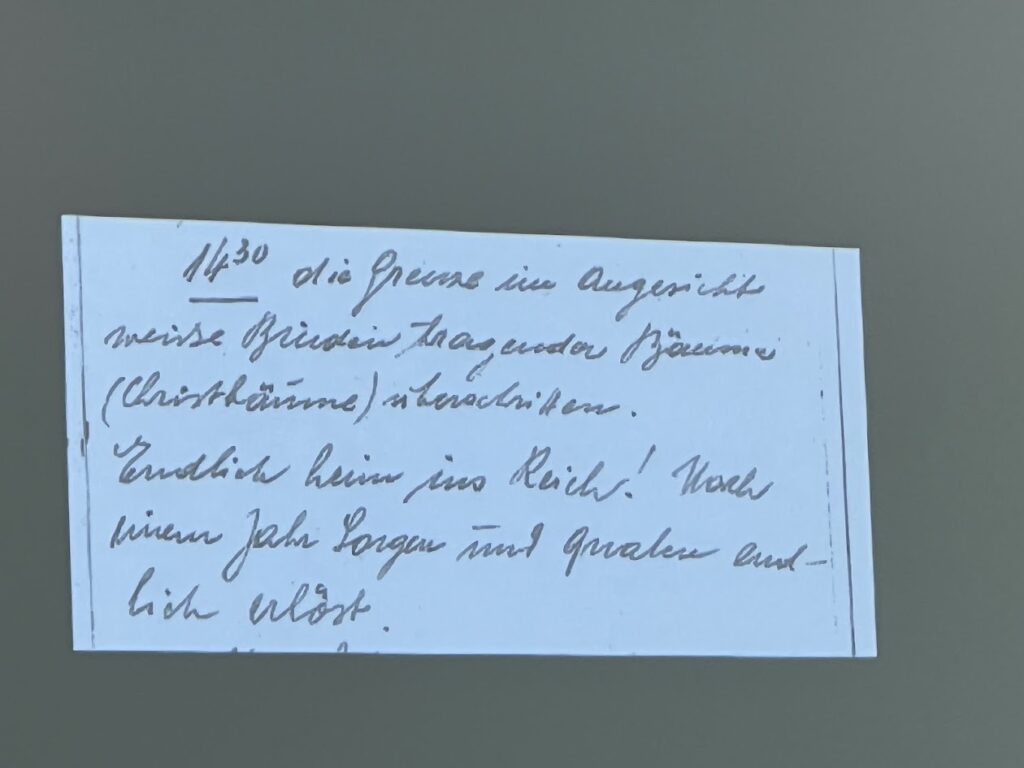 14³⁰ die Grenze im Angesichte
weisse tragender Bäume
(Christbäume) überschritten.
Endlich heim ins Reich! Nach
einem Jahr Sorgen und Qualen end-
lich erlöst.